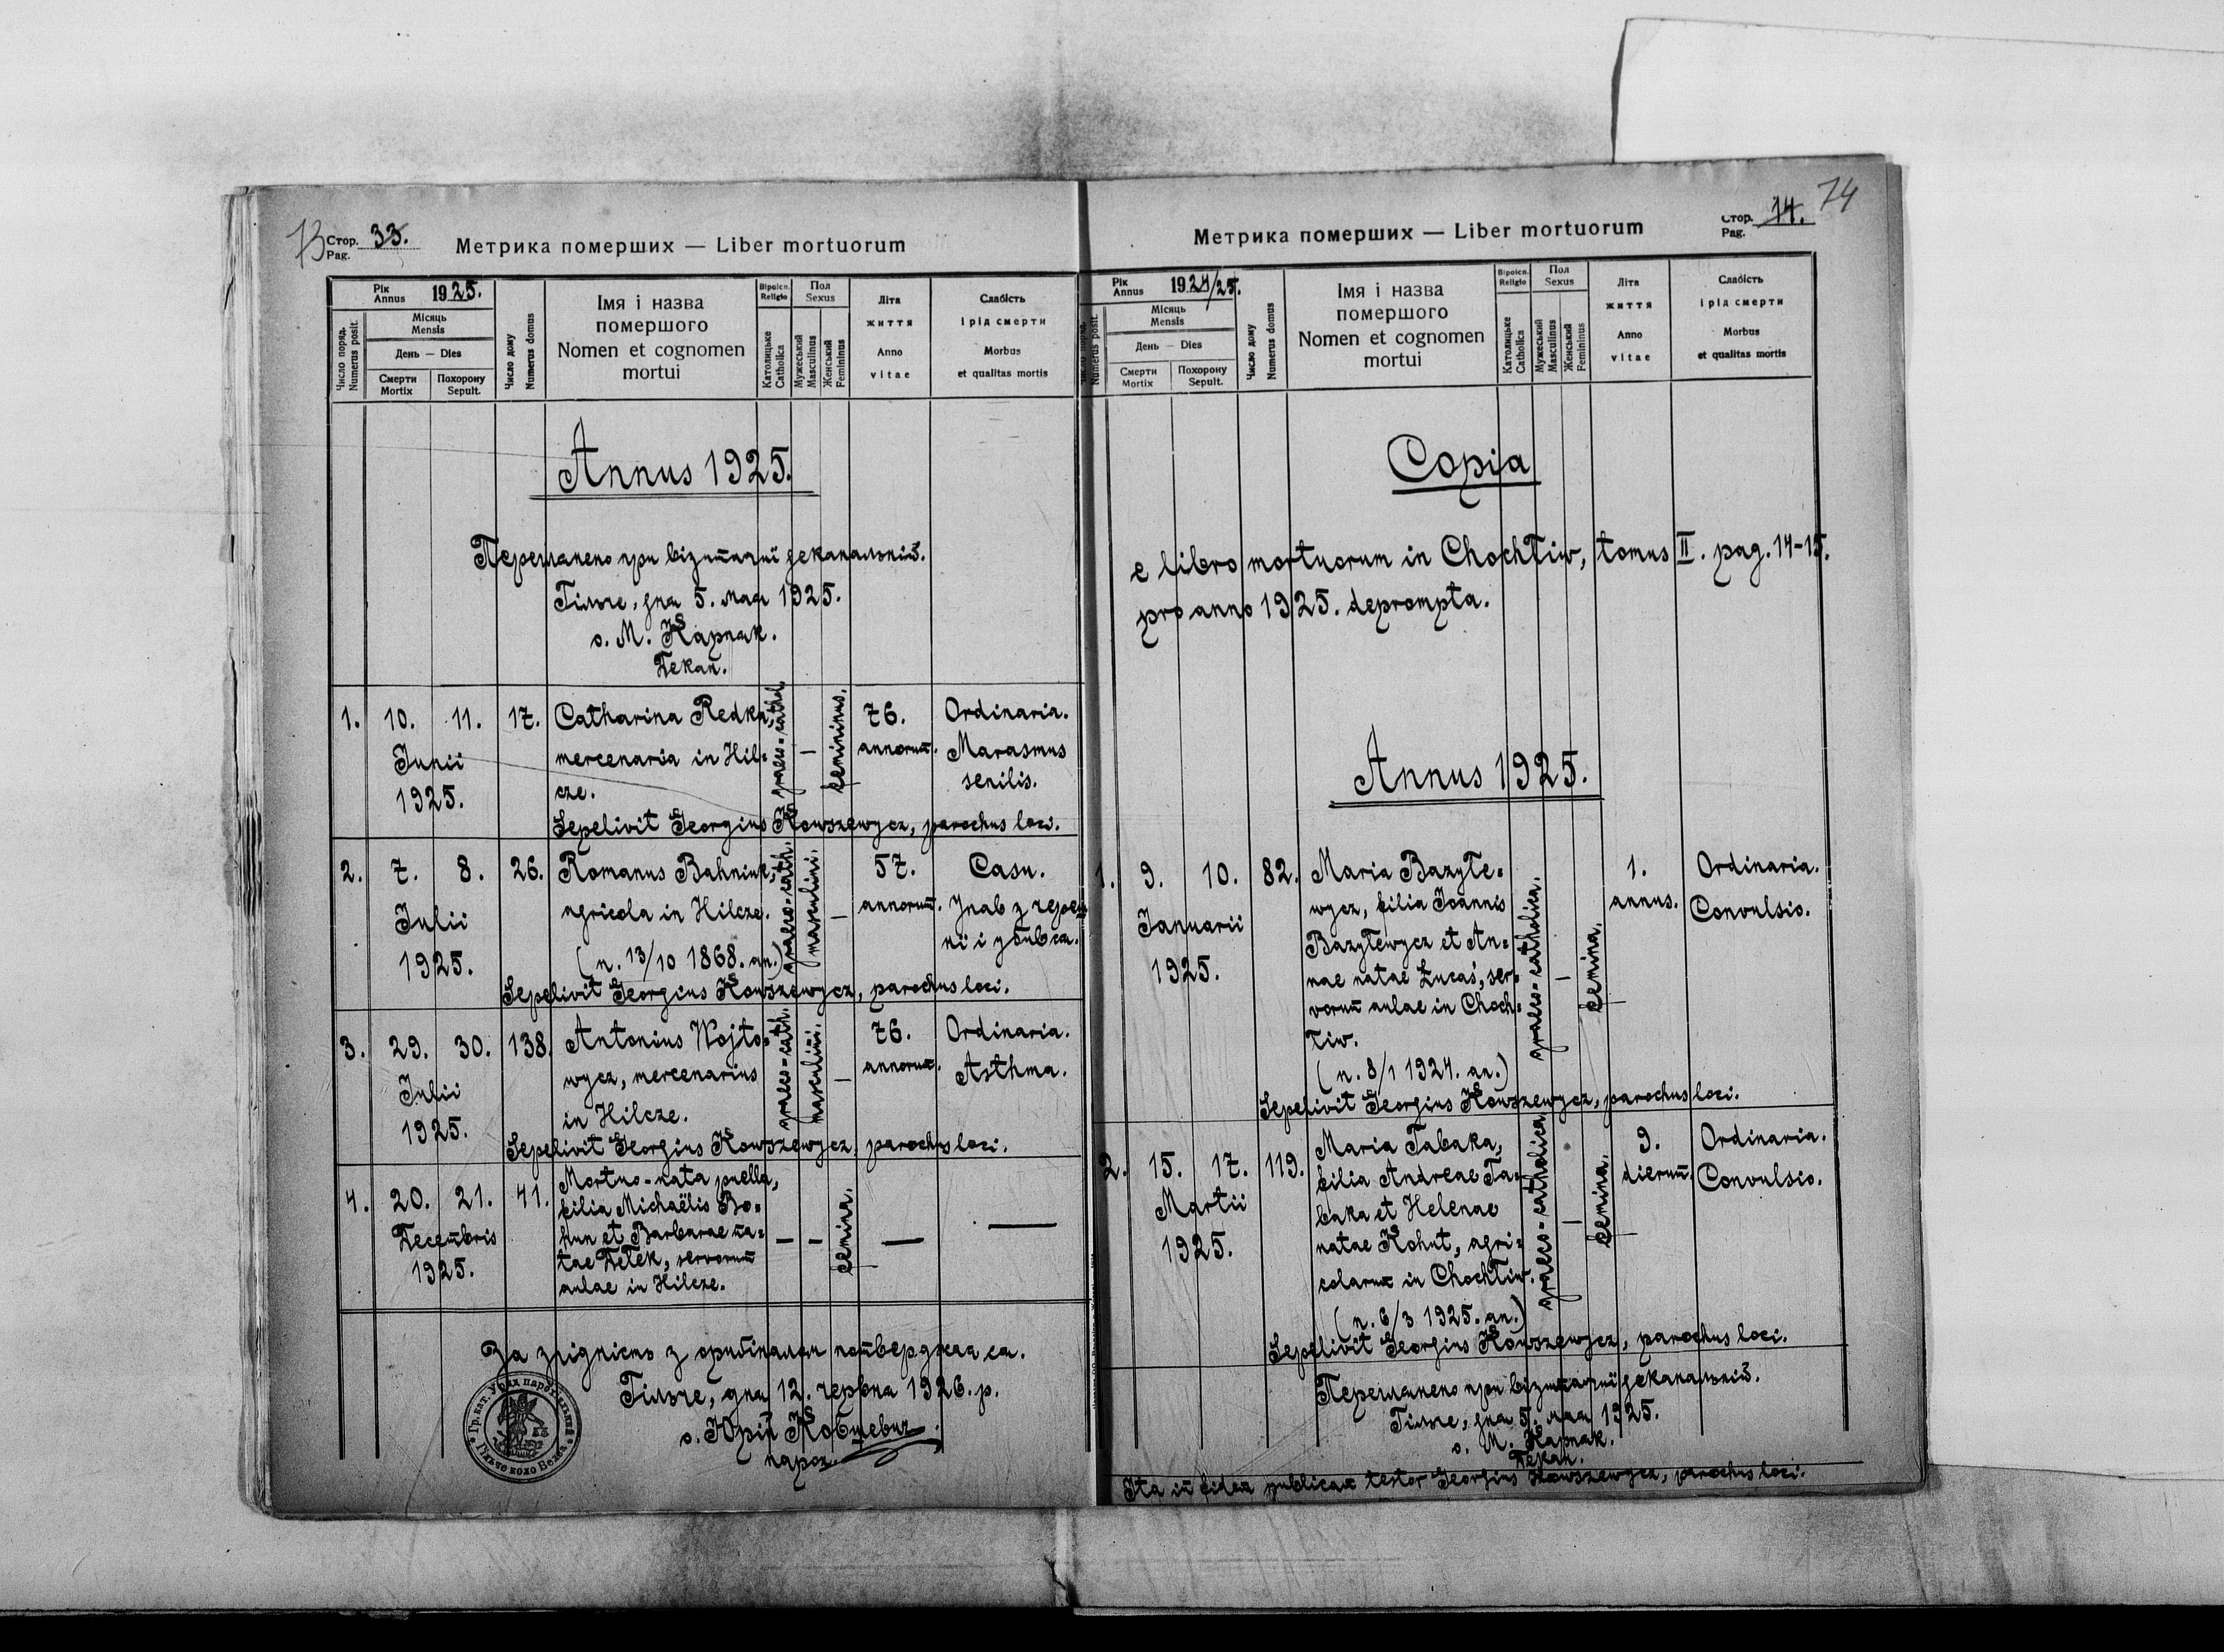 73
Стор. 33.
Pag.
Метрика померших — Liber mortuorum
Рік
Annus 1925.
Число поряд.
Numerus posit.
Місяць
Mensis
День — Dies
Смерти
Mortix
Похорону
Sepult.
Число дому
Numerus domus
Імя і назва
помершого
Nomen et cognomen
mortui
Віроісп.
Religio
Католицьке
Catholica
Пол
Sexus
Мужеський
Masculinus
Женський
Femininus
Літа
життя
Anno
vitae
Слабість
і рід смерти
Morbus
et qualitas mortis
Annus 1925.
Переглянено при візитациї деканальній.
Гільче, дня 5. мая 1925.
о. М. Карпяк.
Декан.
1. 10. 11. 17. Catharina Redka, 76. Ordinaria.
Junii mercenaria in Hil= annorum. Marasmus
1925. cze. senilis.
graeco=cathol. — femininus.
Sepelivit Georgius Kowszewycz, parochus loci.
2. 7. 8. 26. Romanus Bahniuk, 57. Casu.
Julii agricola in Hilcze. annorum. Упав з череш
1925. (n. 13/10 1868. an.) нї і убився.
graeco=cath. masculini. —
Sepelivit Georgius Kowszewycz, parochus loci.
3. 29. 30. 138. Antonius Wojto= 76. Ordinaria.
Julii wycz, mercenarius annorum. Asthma.
1925. in Hilcze.
graeco=cath. masculini. —
Sepelivit Georgius Kowszewycz, parochus loci.
4. 20. 21. 41. Mortuo-nata puella,
Decembris filia Michaëlis Bo=
1925. hun et Barbarae na=
tae Detek, servorum
aulae in Hilcze.
— — femina. — —
За згідність з оригіналом потверджая ся.
Гільче, дня 12. червня 1926. р.
о. Юрій Ковшевич.
парох.
Гр. кат. Уряд парохіяльний
Гільче коло Белза
74
Стор. 14.
Pag.
Метрика померших — Liber mortuorum
Рік
Annus 1924/25.
Numerus posit.
Місяць
Mensis
День — Dies
Смерти
Mortix
Похорону
Sepult.
Число дому
Numerus domus
Імя і назва
помершого
Nomen et cognomen
mortui
Віроісп.
Religio
Католицьке
Catholica
Пол
Sexus
Мужеський
Masculinus
Женський
Femininus
Літа
життя
Anno
vitae
Слабість
і рід смерти
Morbus
et qualitas mortis
Copia
e libro mortuorum in Chochłiw, tomus II. pag. 14-15.
pro anno 1925. deprompta.
Annus 1925.
1. 9. 10. 82. Maria Bazyłe= 1. Ordinaria.
Januarii wycz, filia Joannis annus. Convulsio.
1925. Bazyłewycz et An=
nae natae Łucaś, ser=
vorum aulae in Choch=
łiw.
(n. 8/1 1924. an.)
graeco=catholica. — femina.
Sepelivit Georgius Kowszewycz, parochus loci.
2. 15. 17. 119. Maria Tabaka, 9. Ordinaria.
Martii filia Andreae Ta= dierum. Convulsio.
1925. baka et Helenae
natae Kohut, agri=
colarum in Chochłiw.
(n. 6/3 1925. an.)
graeco=catholica — femina.
Sepelivit Georgius Kowszewycz, parochus loci.
Переглянено при візитациї деканальній.
Гільче, дня 5. мая 1925.
о. М. Карпяк.
Декан.
Ita in fidem publicam testor Georgius Kowszewycz, parochus loci.